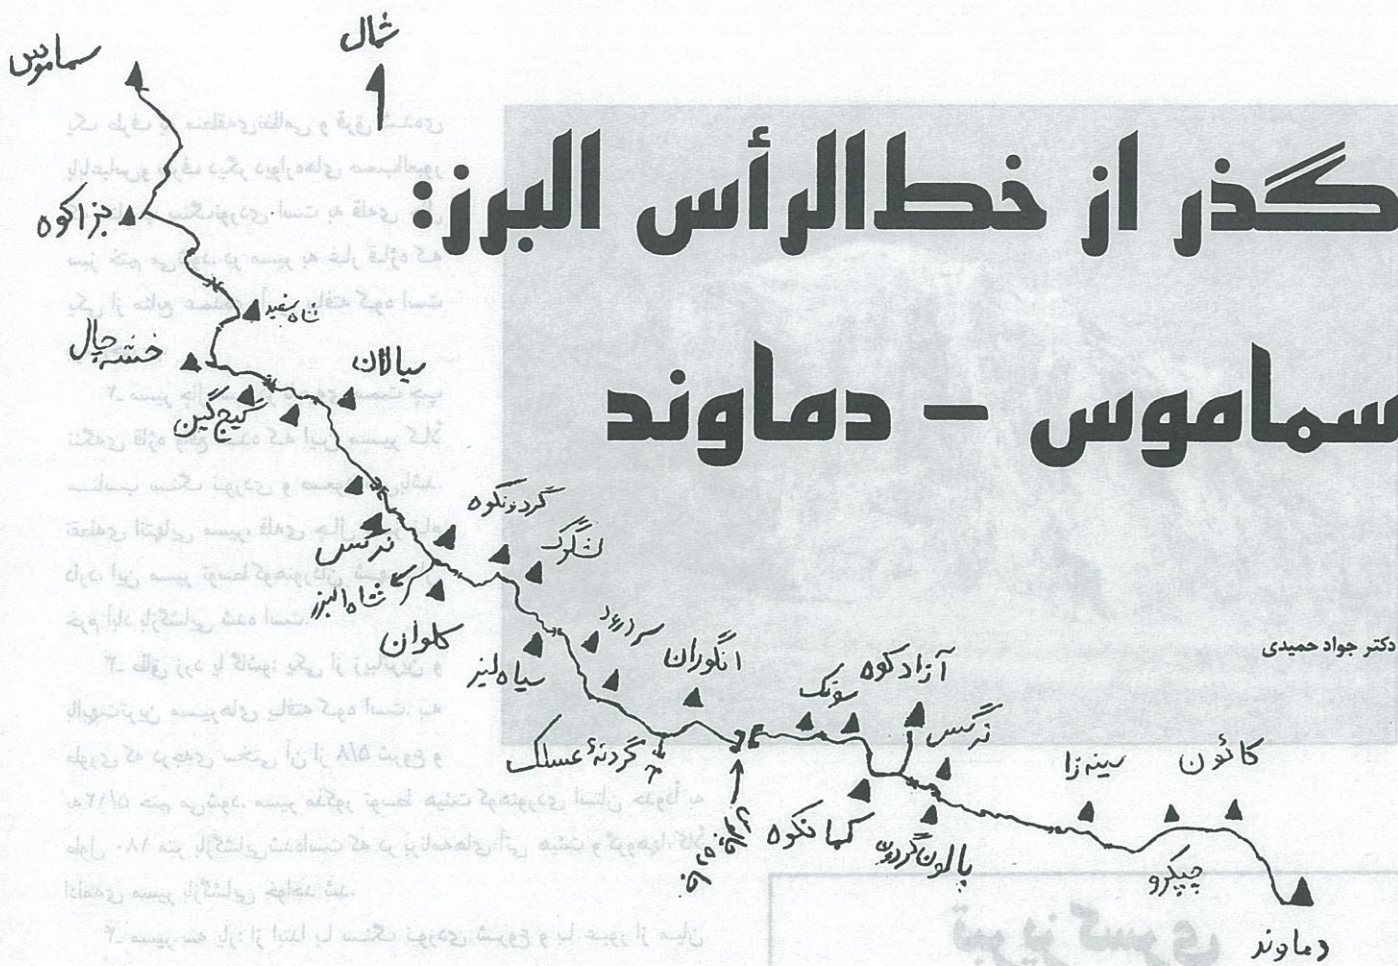 شمال
گذر از خط‌الرأس البرز:
سماموس – دماوند
دکتر جواد حمیدی
سماموس
بزاکوه
شاه سفید
خشه چال
سیالان
گیج گین
گردونکوه
لشگرک
نرگس
شاه البرز
کلوان
سیاه لیز
انگوران
گردنهٔ عسلک
سوتک
آزاد کوه
نرگس
کمانکوه
پالون گردن
سینه زا
کائون
چپکرو
دماوند